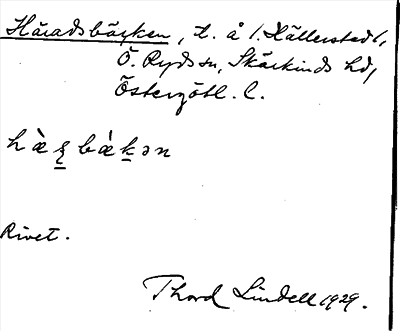 Häradsbäcken, t. å l. Källerstad l,
Ö. Ryds sn, Skärkinds hd,
Östergötl. l.
Rivet.
Thord Lindell 1929.